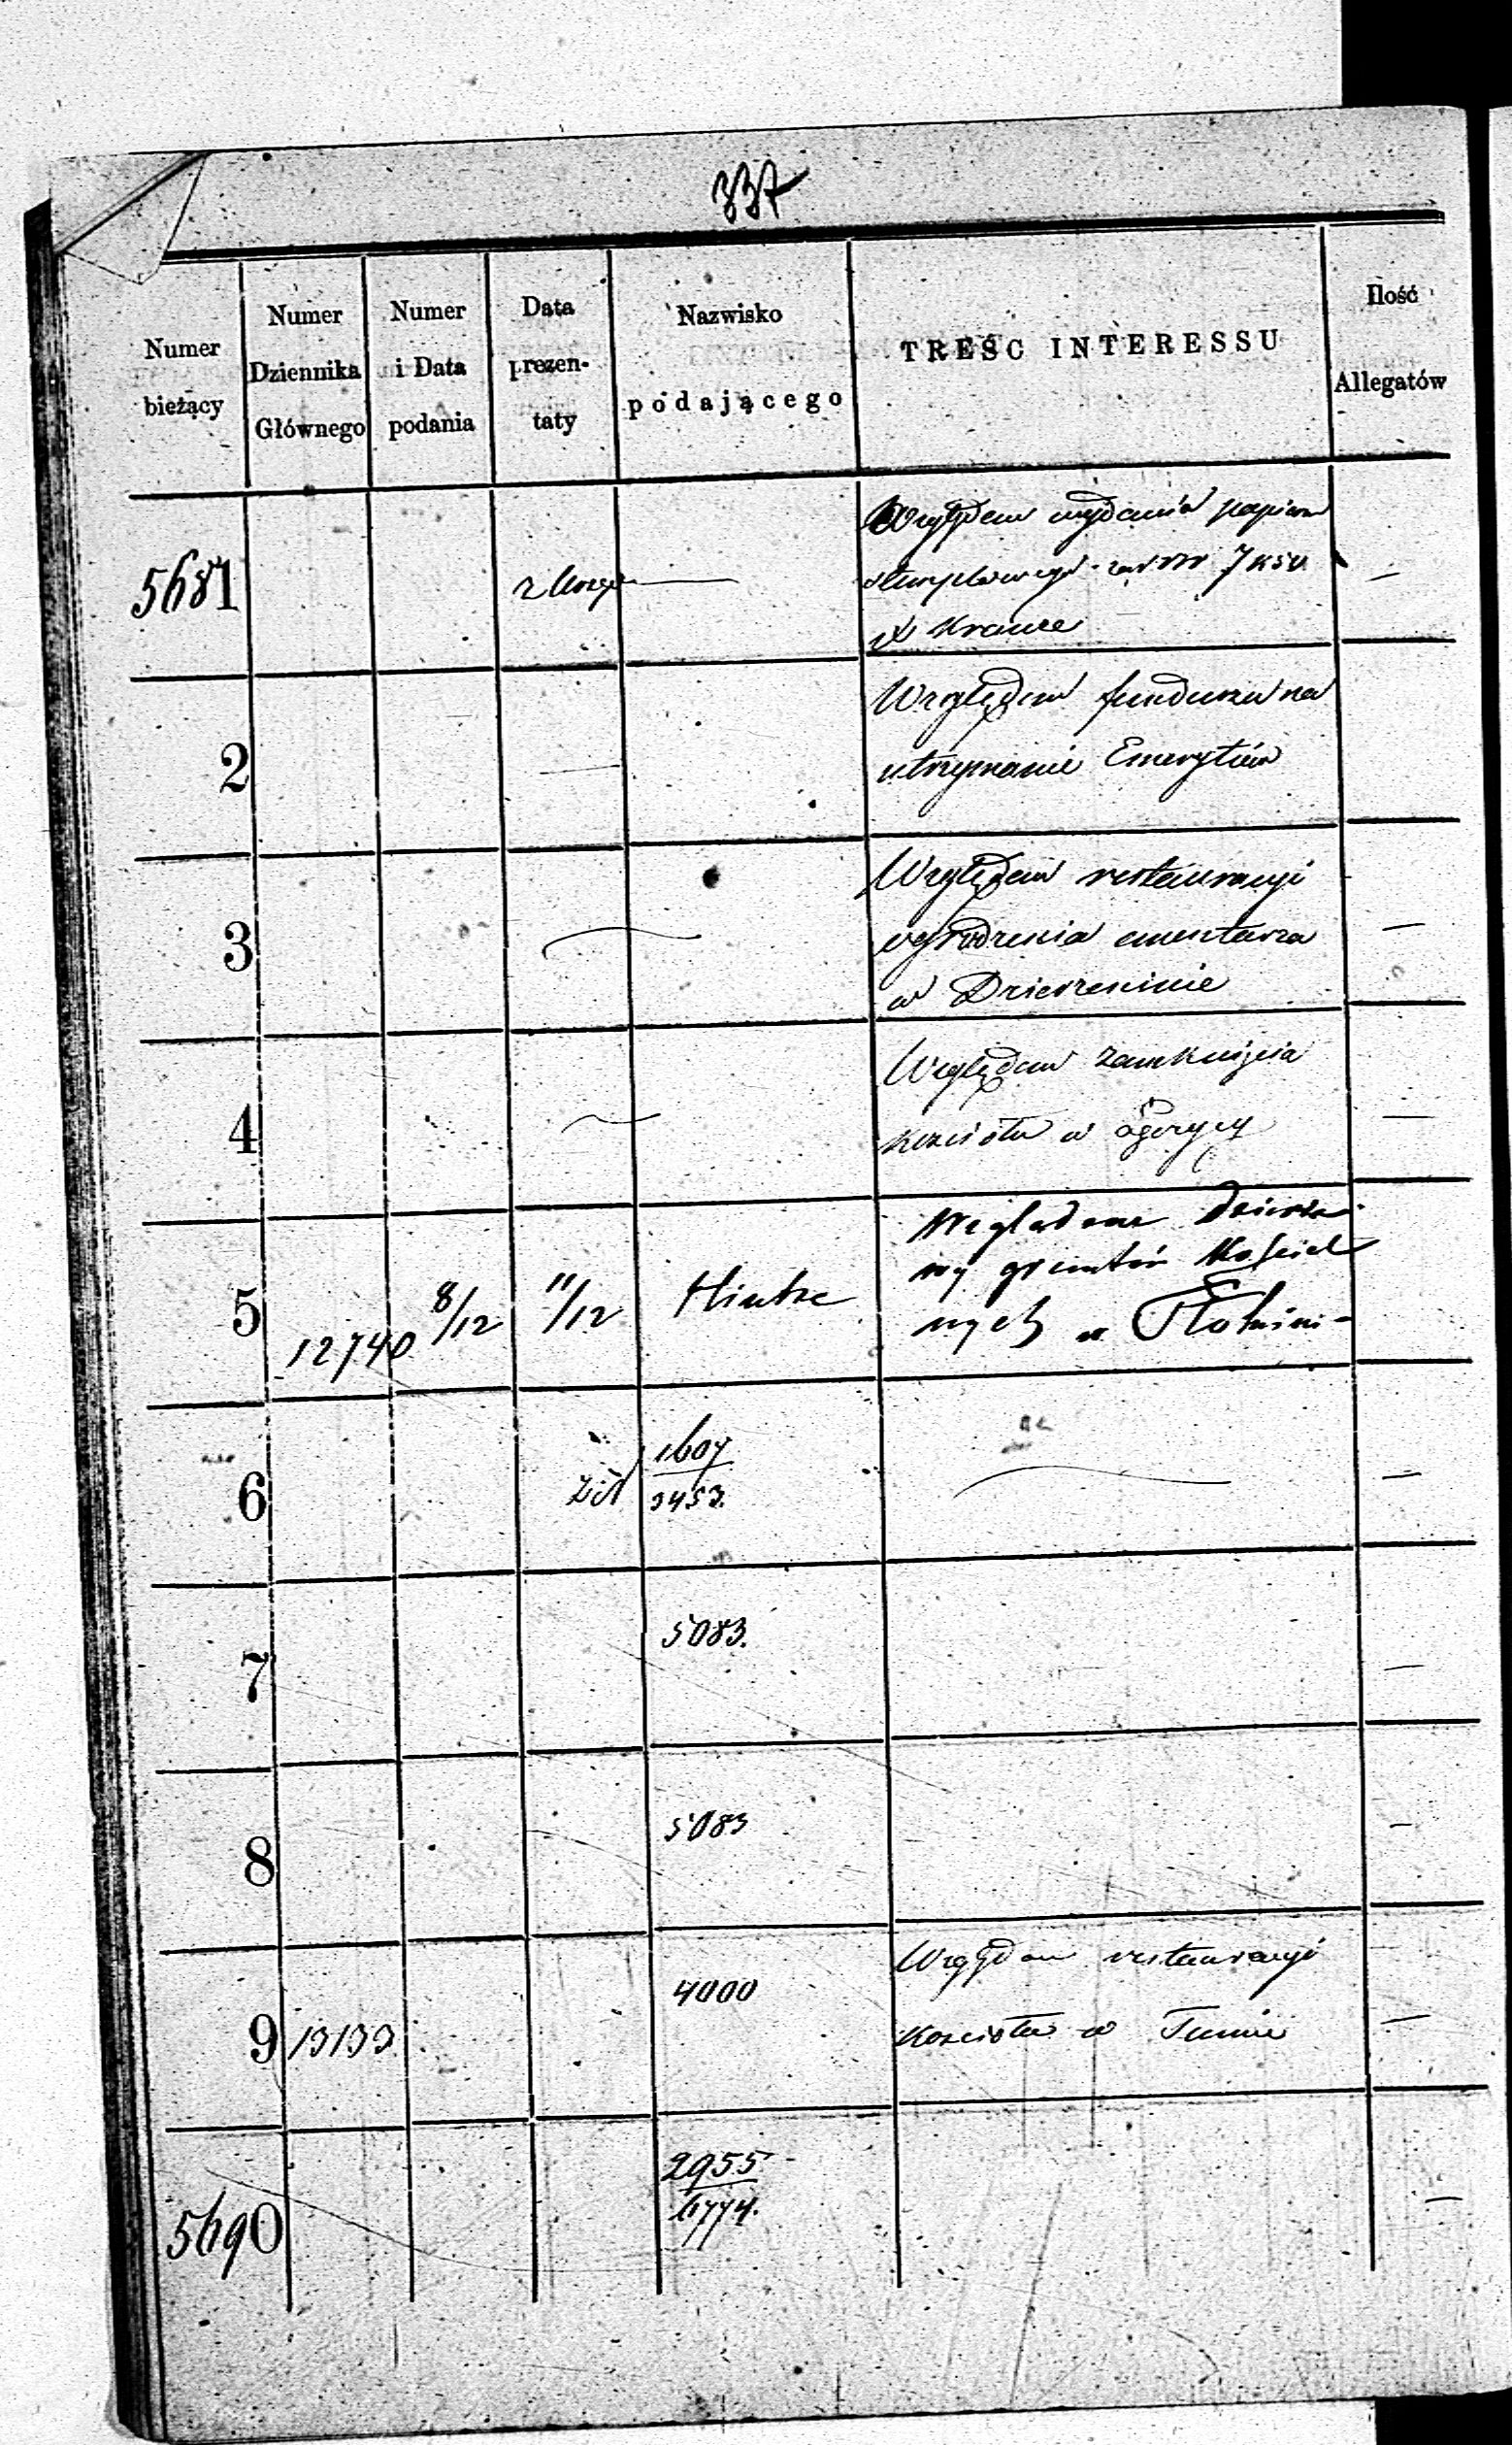 337
Numer bieżący
Numer Dziennika Głównego
Numer i Data podania
Data prezen- taty
Nazwisko podającego
TREŚĆ INTERESSU
Ilość Allegatów
5681
Względem wydania papieru
stemplowego
Krauze
2
Względem funduszu na
utrzymanie Emerytów
3
Względem restauracyi
ogrodzenia cmentarza
w Dzierzeninie
4
Względem zamknięcia
kościoła w
5
12740
8/12
11/12
Hintze
Względem dzierża-
wy gruntów Kościel
nych w
6
1607
3453.
7
5083.
8
5083
9
13133
4000
Względem restauracyi
Kościoła w Tumie
5690
2955
6774.